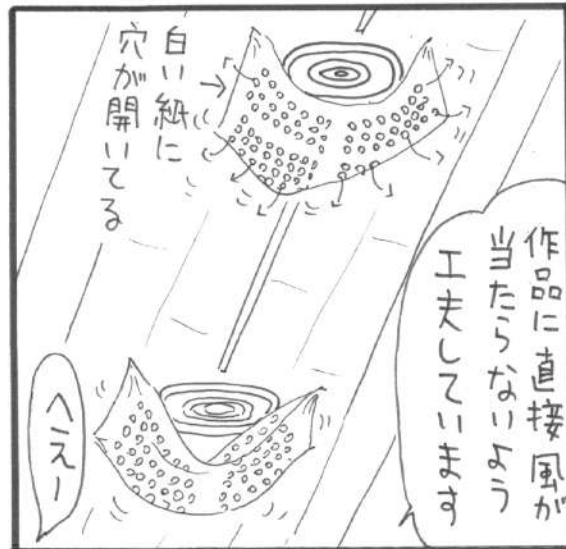 作品に直接風が
当たらないよう
工夫しています
白い紙に
穴が開いてる
へえー